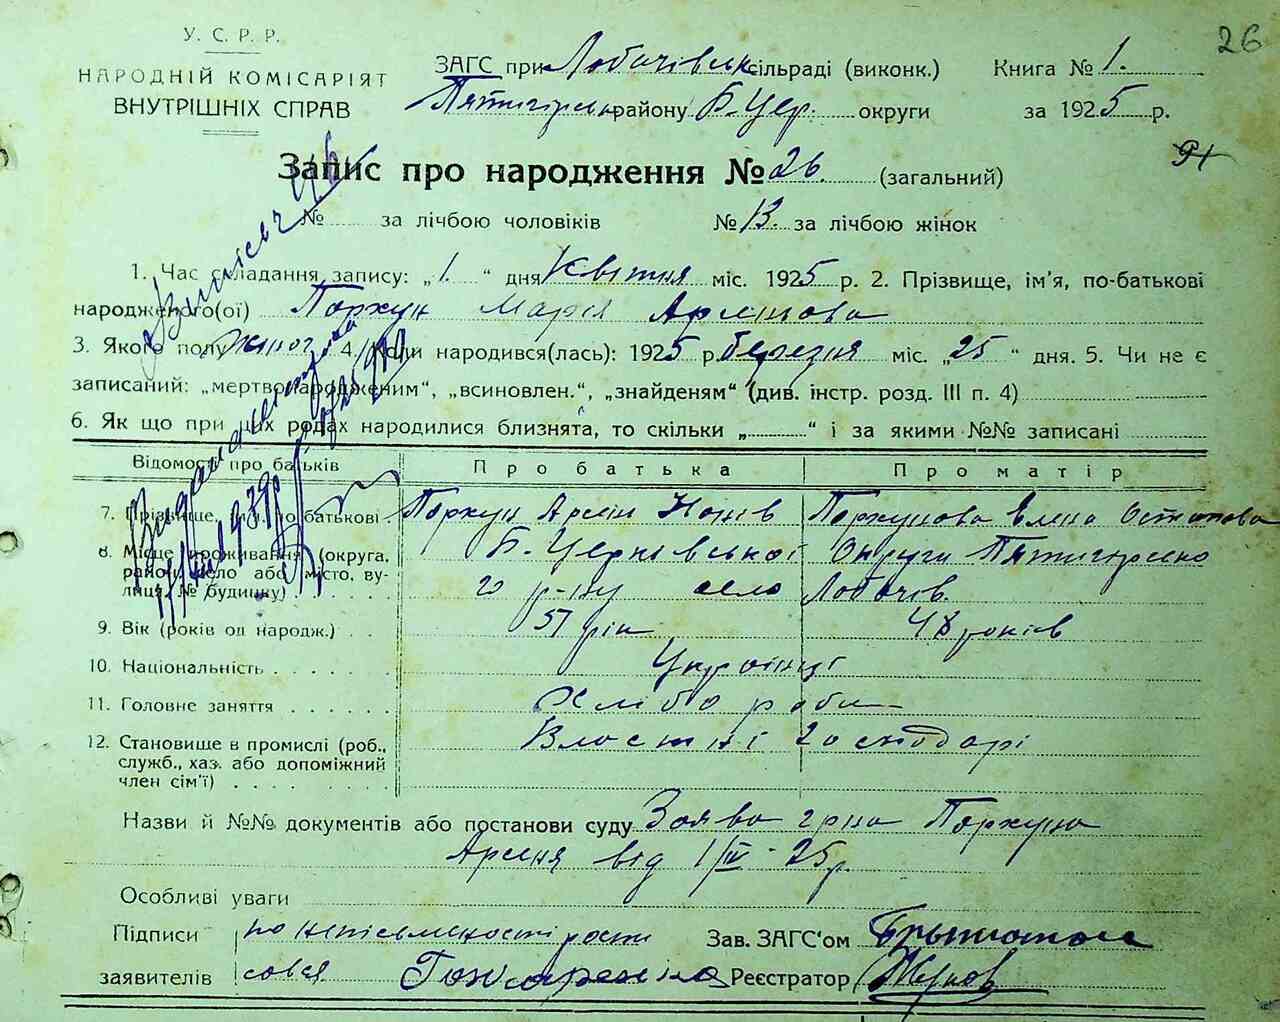 26
У. С. Р. Р.
НАРОДНІЙ КОМІСАРІЯТ
ВНУТРІШНІХ СПРАВ
ЗАГС при Лобачівськ. сільраді (виконк.) Книга № 1.
Пятигірськ. району Б. Цер. округи за 1925 р.
Запис про народження № 26. (загальний)
№ за лічбою чоловіків № 13. за лічбою жінок
1. Час складання запису: „1.“ дня Квітня міс. 1925 р. 2. Прізвище, ім'я, по-батькові
народженого(ої) Поржун Марія Арсенова
3. Якого полу жіноч. 4. Коли народився(лась): 1925 р. березня міс. „25“ дня. 5. Чи не є
записаний: „мертвонародженим“, „всиновлен.“, „знайденям“ (див. інстр. розд. III п. 4)
6. Як що при цих родах народилися близнята, то скільки „ “ і за якими №№ записані
Відомості про батьків Про батька Про матір
7. Прізвище, ім'я, по батькові. Поржун Арсін Нонів Поржунова Елена Остапова
8. Місце проживання (округа, Б. Церковської Округи Пятигорсько
район, село або місто, ву- го р-ну село Лобачів.
лиця, № будинку)
9. Вік (років од народж.) 51 рік 48 років
10. Національність Українці
11. Головне заняття Хлібороби
12. Становище в промислі (роб., Власні господарі
служб., хаз. або допоміжний
член сім'ї)
Назви й №№ документів або постанови суду Заява гр-на Поржуна
Арсеня від 1/IV - 25 р.
Особливі уваги
Підписи по неписьменості росписався Зав. ЗАГС'ом
заявителів Гончаренко Реєстратор